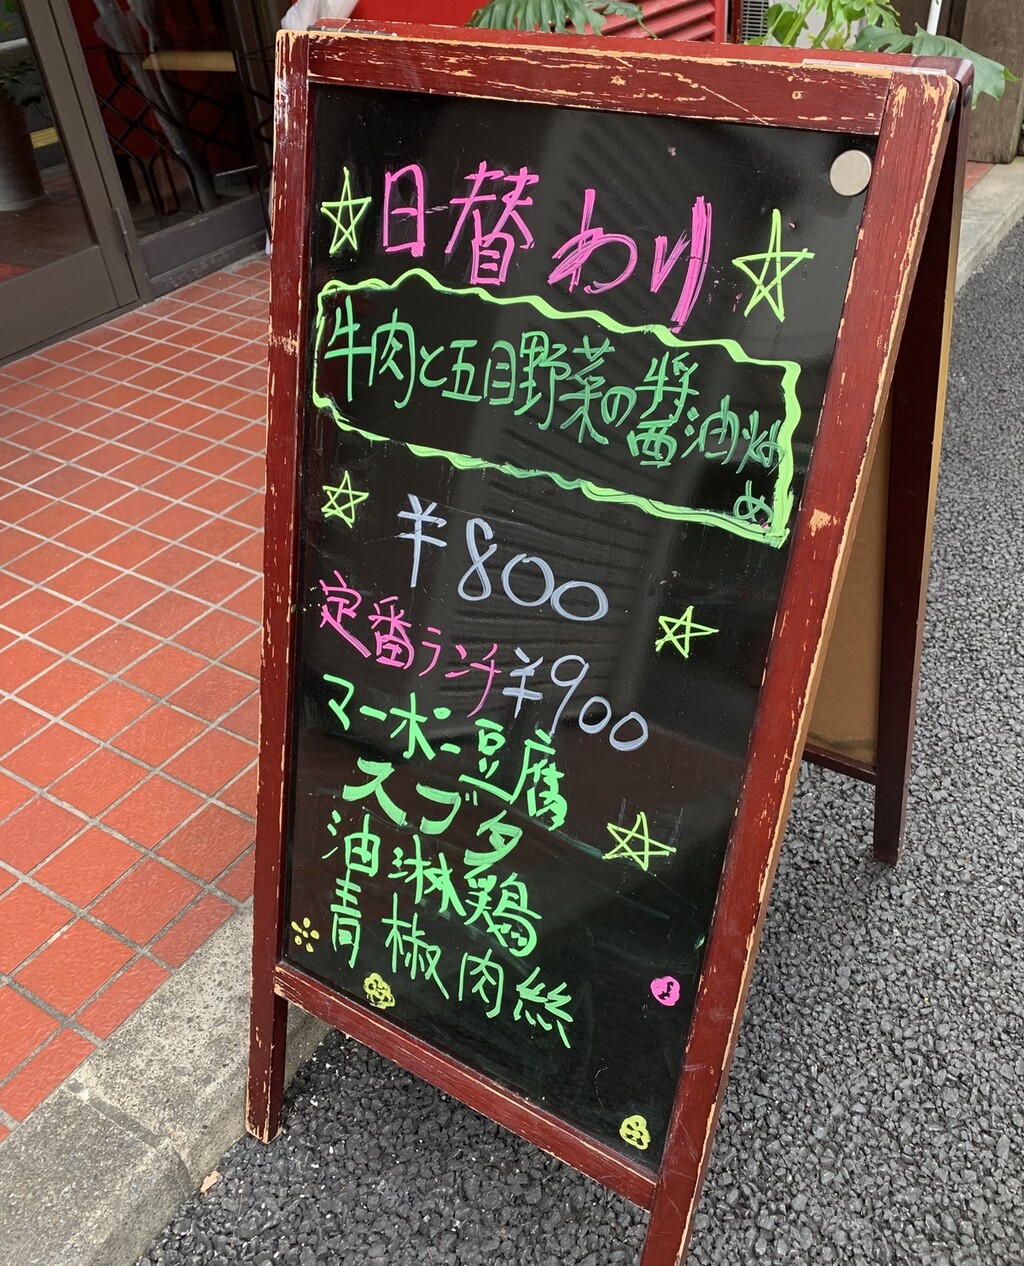 日替わり
牛肉と五目野菜の醤油炒
め
¥800
定番ランチ ¥900
マーボー豆腐
スブタ
油淋鶏
青椒肉絲